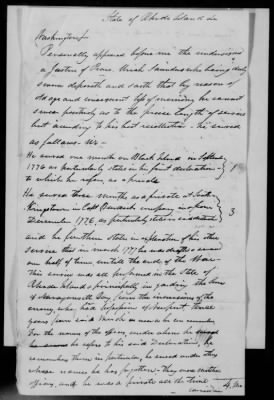 State of Rhode Island Ss
Washington Ss
Personally appeared before me the undersigned
a Justice of Peace Uriah Saunders who being duly
sworn deposeth and saith that by reason of
old age and consequent loss of memory he cannot
swear positively as to the precise length of service
but according to his best recollection he served
as follows. Viz
He served one month on Block Island in
1776 as particularly stated in his former declaration
to which he refers, as a private } 1
He served three months as private at North
Kingstown in Capt company in from
December 1776, as particularly stated } 3
and he further states in explanation of his other
service that in month 1777 he
one half of time, untill the end of the War
This service was all performed in the State of
Rhode Island & principally in guarding the shore
of Narragansett Bay from the incursions of the
enemy, who had possession of Newport three
years from said March
For the names of the officers under whom he served
he refer to his said Declaration, he
remembers them in particular, he served under others
whose names he has forgotten, they were
officers, and he was a private all the time
4 Mo